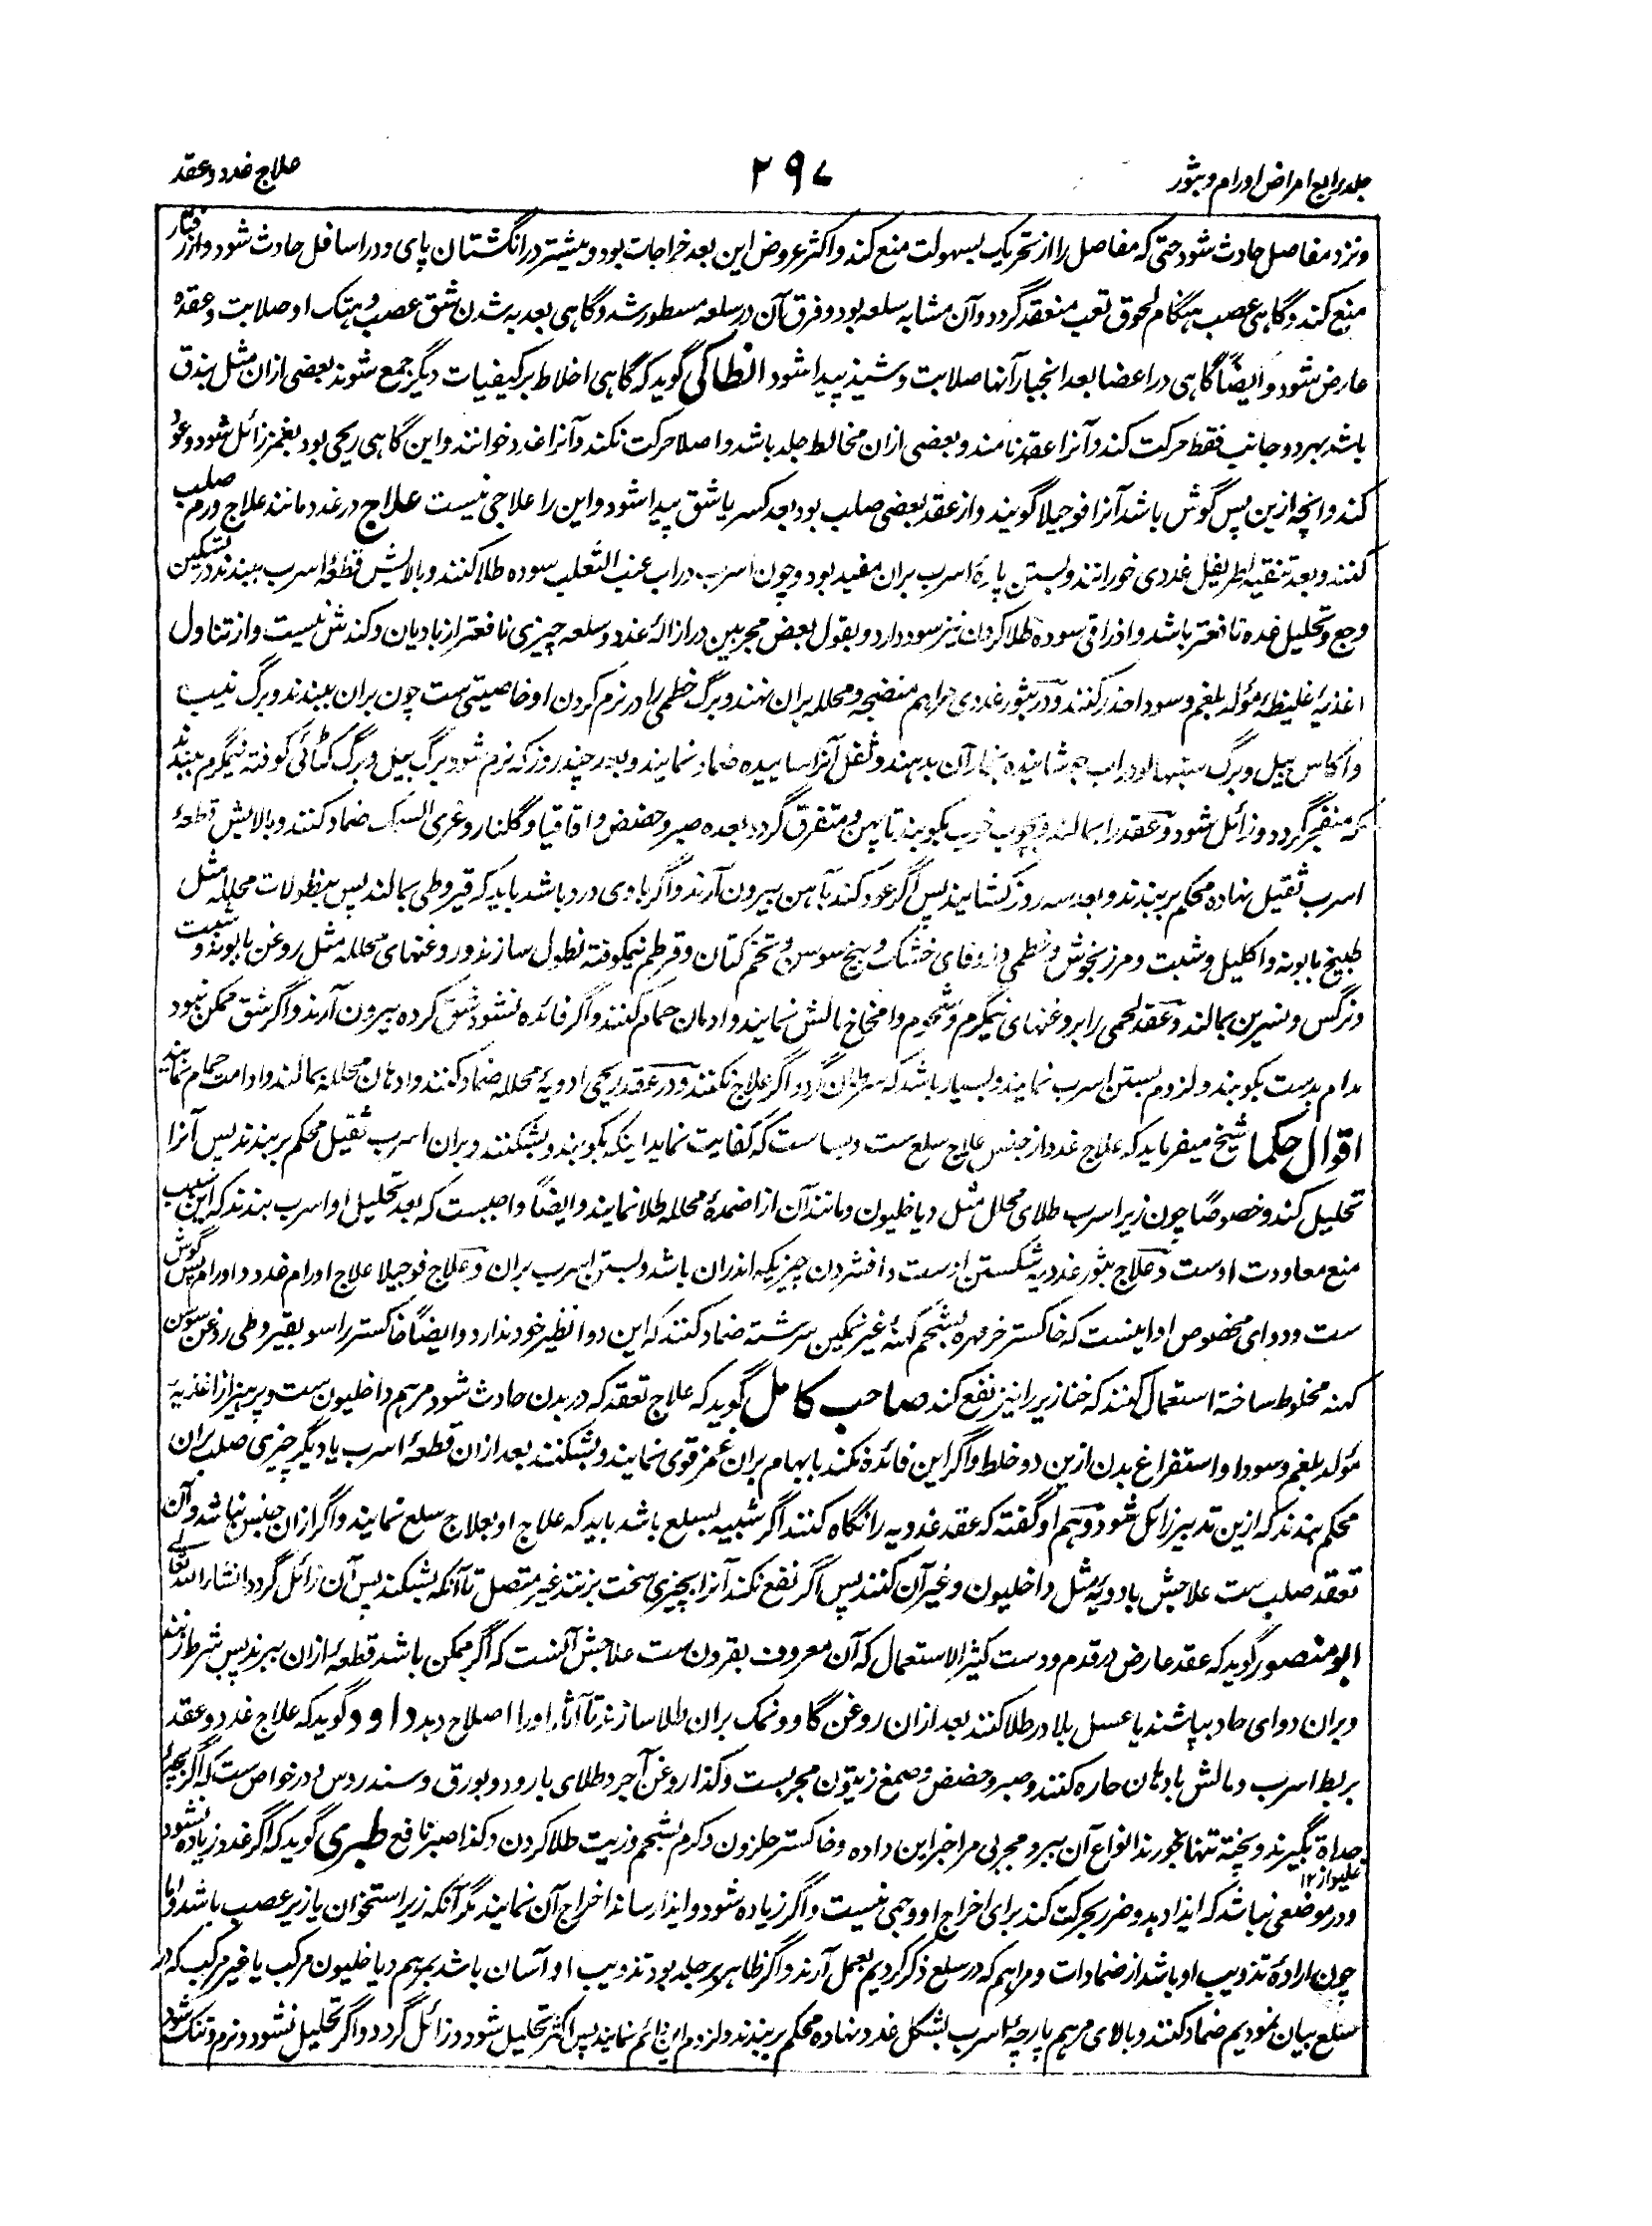 جلد رابع امراض اورام و بثور
۲۹۷
علاج غدد و عقد
و نزد مفاصل حادث شود حتی که مفاصل را از تحریک بسهولت منع کند و اکثر عروض این بعد خراجات بود و بیشتر در انگشتان پای و در اسافل حادث شود و از رفتار
منع کند و گاهی عصب هنگام لحوق تعب منعقد گردد و آن مشابه سلعه بود و فرق آن در سلعه مسطور شد و گاهی بعد به شدن شق عصب و هتک او صلابت و عقده
عارض شود و ایضاً گاهی در اعضا بعد انجبار آنها صلابت و شبذ پیدا شود انطاکی گوید که گاهی اخلاط بر کیفیات دیگر جمع شوند بعضی ازان مثل بندق
باشد بهر دو جانب فقط حرکت کند و آنرا عقد نامند و بعضی ازان مخالط جلد باشد و اصلا حرکت نکند و آنرا غدد خوانند و این گاهی ریحی بود بغمز زائل شود و عود
کند و انچه ازین پس گوش باشد آنرا فوجیلا گویند و از عقد بعضی صلب بود بعد کسر یا شق پیدا شود و این را علاجی نیست علاج در غدد مانند علاج ورم صلب
کنند و بعد تنقیه اطریفل غددی خورانند و بستن پارهٔ اسرب بران مفید بود و چون اسرب در اب عنب الثعلب سوده طلا کنند و بالایش قطعهٔ اسرب ببندند در تسکین
وجع و تحلیل غده نافعتر باشد و اذراقی سوده طلا کردن نیز سود دارد و بقول بعض مجربین در ازالهٔ غدد و سلعه چیزی نافعتر از بادیان و کندش نیست و از تناول
اغذیهٔ غلیظهٔ مولد بلغم و سودا حذر کنند و در بثور غددی مراهم منضجه و محلله بران نهند و برگ خطمی را در نرم کردن او خاصیتی ست چون بران ببندند و برگ نیب
و آکاس بیل و برگ سنبهالو در اب جوشانیده بخار آن بدهند و ثفل آنرا ساییده ضماد نمایند و بعد چند روز که نرم شود برگ بیل و برگ کٹائی کوفته نیمگرم ببندند
که منفجر گردد و زائل شود و عقد را بمالند و بچوب خوب بکوبند تا پهن و متفرق گردد بعده صبر و حضض و اقاقیا و گلنار و غری السمک ضماد کنند و بالایش قطعهٔ
اسرب ثقیل نهاده محکم بر بندند و بعد سه روز کشایند پس اگر عود کند بآهن بیرون آرند و اگر باوی درد باشد باید که قیروطی بمالند پس بنطولات محلله مثل
طبیخ بابونه و اکلیل و شبت و مرزنجوش و خطمی و زوفای خشک و بیخ سوسن و تخم کتان و قرطم نیمکوفته نطول سازند و روغنهای محلله مثل روغن بابونه و شبت
و نرگس و نسرین بمالند و عقد لحمی را بروغنهای نیمگرم و شحوم و امخاخ مالش نمایند و ادمان حمام کنند و اگر فائده نشود شق کرده بیرون آرند و اگر شق ممکن نبود
مدام بدست بکوبند و لزوم بستن اسرب نمایند و بسیار باشد که سرطان گردد اگر علاج نکنند و در عقد ریحی ادویهٔ محلله ضماد کنند و ادهان محلله بمالند و ادامت حمام نمایند
اقوال حکما شیخ میفرماید که علاج غدد از جنس علاج سلع ست و بسا ست که کفایت نماید اینکه بکوبند و بشکنند و بران اسرب ثقیل محکم بر بندند پس آنرا
تحلیل کند و خصوصاً چون زیر اسرب طلای محلل مثل دیاخلیون و مانند آن از اضمدهٔ محلله طلا نمایند و ایضاً واجبست که بعد تحلیل او اسرب بندند که این سبب
منع معاودت اوست و علاج بثور غددیه شکستن اوست و افشردن چیزیکه اندران باشد و بستن اسرب بران و علاج فوجیلا علاج اورام غدد و اورام پس گوش
ست و دوای مخصوص او اینست که خاکستر خرمهره بشحم کهنهٔ غیر نمکین سرشته ضماد کنند که این دوا نظیر خود ندارد و ایضاً خاکستر راسو بقیروطی روغن سوسن
کهنه مخلوط ساخته استعمال کنند که خنازیر را نیز نفع کند صاحب کامل گوید که علاج تعقد که در بدن حادث شود مرهم داخلیون ست و پرهیز از اغذیهٔ
مولد بلغم و سودا و استفراغ بدن ازین دو خلط و اگر این فائده نکند بابهام بران غمز قوی نمایند و بشکنند بعد ازان قطعهٔ اسرب یا دیگر چیزی صلب بران
محکم بندند که ازین تدبیر زائل شود و هم او گفته که عقد غددیه را نگاه کنند اگر شبیه بسلع باشد باید که علاج او بعلاج سلع نمایند و اگر ازان جنس نباشد و آن
تعقد صلب ست علاجش بادویه مثل داخلیون و غیر آن کنند پس اگر نفع نکند آنرا بچیزی سخت بزنند غیر متصل تا آنکه بشکند پس آن زائل گردد انشاء الله تعالی
ابو منصور گوید که عقد عارض در قدم و دست کثیر الاستعمال که آن معروف بقرون ست علاجش آنست که اگر ممکن باشد قطعهٔ ازان ببرند پس شرط زنند
و بران دوای حاد بپاشند یا عسل بلادر طلا کنند بعد ازان روغن گاو و نمک بران طلا سازند تا آثار او را اصلاح دهد داود گوید که علاج غدد و عقد
بربط اسرب و مالش بادهان حاره کنند و صبر و حضض و صمغ زیتون مجربست و کذا روغن آجر و طلای بارود و بورق و سندروس و در خواص ست که اگر بچهٔ
حداة بگیرند و پخته تنها بخورند انواع آن ببرد و مجربی مرا خبر این داده و خاکستر حلزون و کرم بشحم و زیت طلا کردن و کذا صبر نافع طبری گوید که اگر غدد زیاده نشود
غلیواز ۱۲
و در موضعی نباشد که ایذا دهد و ضرر بحرکت کند برای اخراج او وجهی نیست و اگر زیاده شود و ایذا رساند اخراج آن نمایند مگر آنکه زیر استخوان یا زیر عصب باشد و اما
چون ارادهٔ تذویب او باشد از ضمادات و مراهم که در سلع ذکر کردیم بعمل آرند و اگر ظاهر بر جلد بود تذویب او آسان باشد بمرهم دیاخلیون مرکب یا غیر مرکب که در
سلع بیان نمودیم ضماد کنند و بالای مرهم پارچهٔ اسرب بشکل غدد نهاده محکم بر بندند و لزوم این دائم نمایند پس اکثر تحلیل شود و زائل گردد و اگر تحلیل نشود و نرم و تنک شود